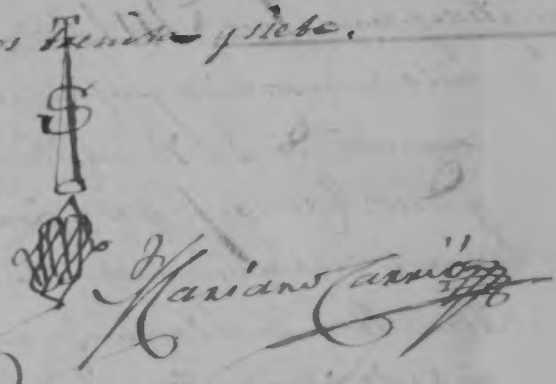 os treinta y siete.
S
Mariano Carrió